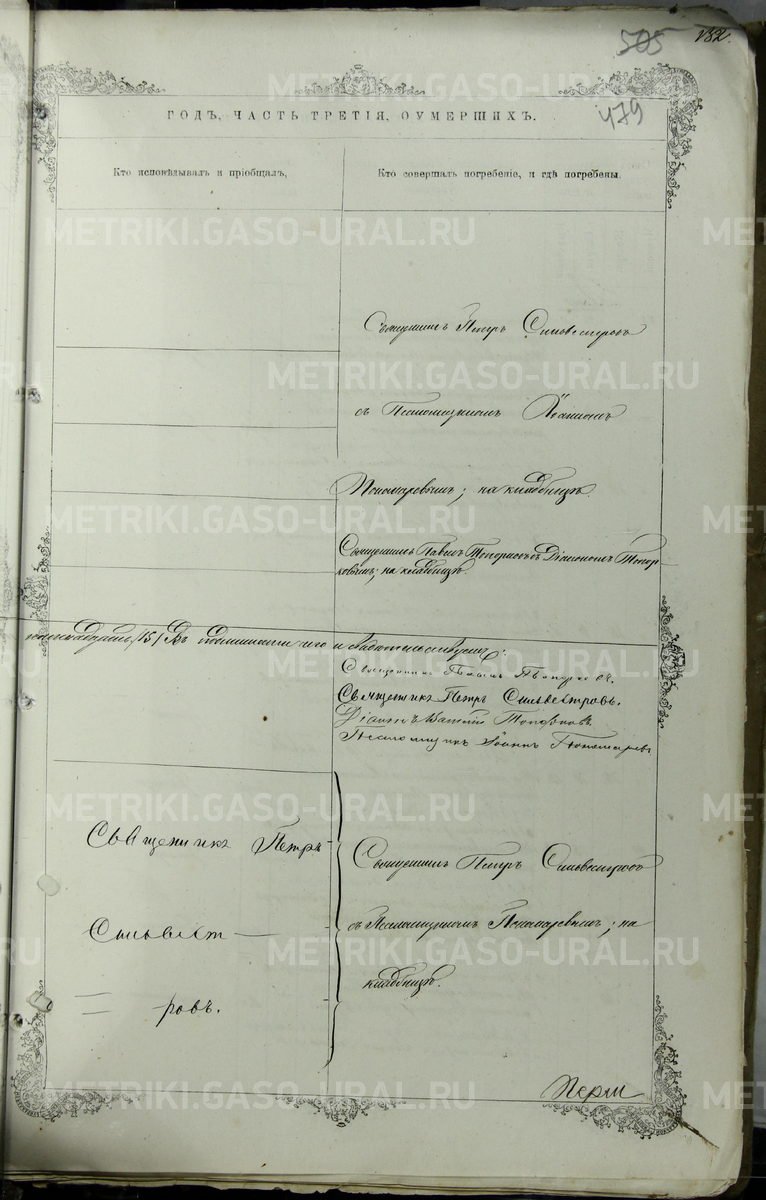 505
132.
479
ГОДЪ, ЧАСТЬ ТРЕТІЯ, ОУМЕРШИХЪ.
Кто исповѣдывалъ и пріобщалъ,
Кто совершалъ погребеніе, и гдѣ погребены.
Священникъ Петръ Сильвестровъ
съ Псаломщикомъ Іоанномъ
Пономаревымъ; на кладбищѣ.
Священникъ Павелъ Топорковъ съ Діакономъ Топор-
ковымъ; на кладбищѣ.
/15/ Въ
Священникъ Павелъ Топорковъ.
Священникъ Петръ Сильвестровъ.
Діаконъ Василій Топорковъ.
Псаломщикъ Іоаннъ Пономаревъ
Священникъ Петръ
Сильвест
= ровъ.
Священникъ Петръ Сильвестровъ
съ Псаломщикомъ Пономаревымъ; на
кладбищѣ.
Перм
METRIKI.GASO-URAL.RU